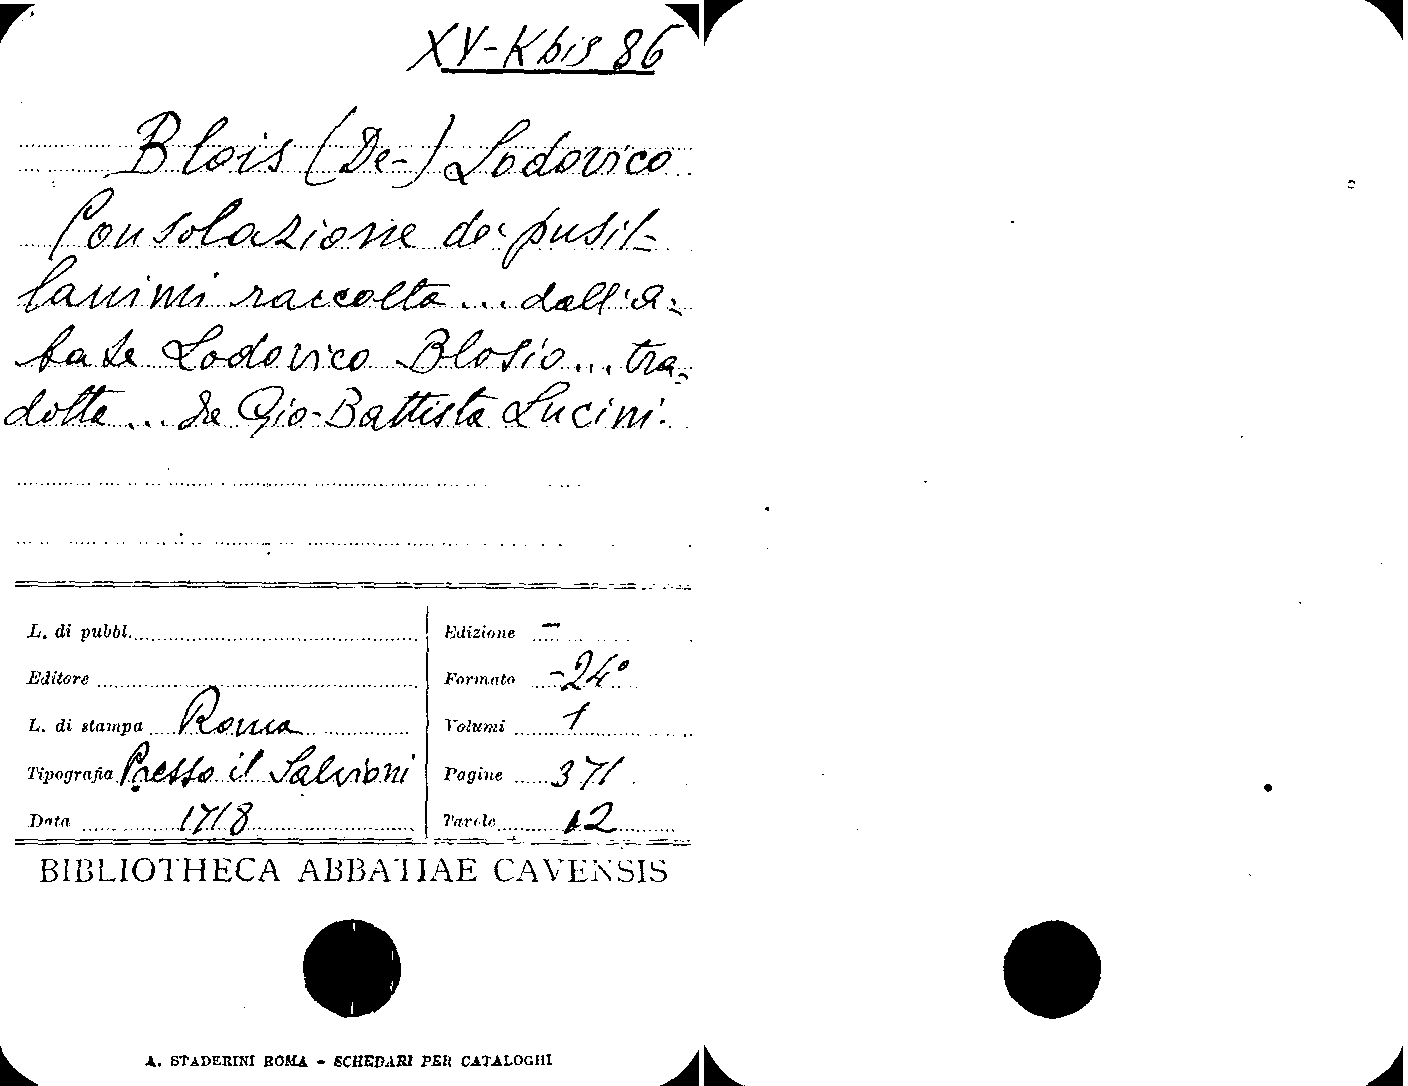 XV-K bis 86
Blois (De-) Lodovico
Consolazione de' pusil=
lanimi raccolta ... dall'a=
bate Lodovico Blosio ... tra=
dotta ... da Gio-Battista Lucini.
L. di pubbl.
Edizione –
Editore
Formato -24°
L. di stampa Roma
Volumi 1
Tipografia Presso il Salvioni
Pagine 371
Data 1718
Tavole 12
BIBLIOTHECA ABBATIAE CAVENSIS
A. STADERINI ROMA - SCHEDARI PER CATALOGHI